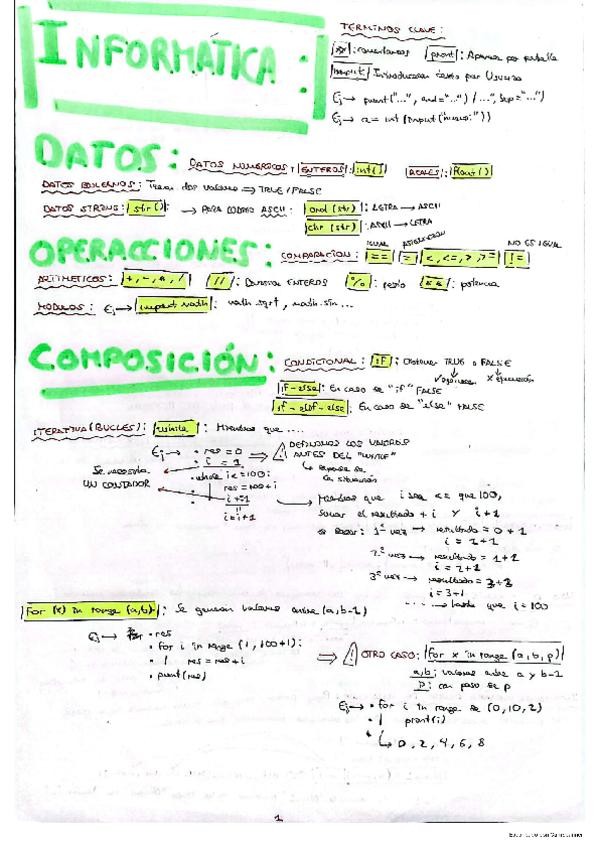 INFORMÁTICA:
TERMINOS CLAVE:
|##|: comentarios |print|: Aparece por pantalla
|input| Introducción datos por Usuario
Ej → print("...", end="...") / ...", sep="...")
Ej → a = int(input("numero:"))
DATOS:
DATOS NUMERICOS: |ENTEROS|: |int()| |REALES|: |float()|
DATOS BOOLEANOS: Tienen dos valores ⇒ TRUE/FALSE
DATOS STRING: |str()|: → PARA CODIGO ASCII: |ord(str)|: LETRA → ASCII
|chr(str)|: ASCII → LETRA
OPERACCIONES:
COMPARACION: IGUAL |==| ASIGNACION |=| |<,<=,>,>=| NO ES IGUAL |!=|
ARITMETICOS: |+,-,*,/| |//|: Division ENTEROS |%|: resto |**|: potencia
MODULOS: Ej → |import math|: math.sqrt, math.sin...
COMPOSICIÓN:
CONDICIONAL: |if|: Obtener TRUE o FALSE
|if-else|: En caso de "if" FALSE
|if-elif-else|: En caso de "else" FALSE
ITERATIVA (BUCLES): |while|: Mientras que ....
Ej → • res = 0 ⇒ DEFINIMOS LOS VALORES
• i = 1 ANTES DEL "WHILE"
Se necesita • while i <= 100: ↳ depende de
UN CONTADOR • res = res + i la situación
i += 1 → Mientras que i sea <= que 100,
i = i+1 sumar el resultado + i y i+1
1ª vez → resultado = 0 + 1
i = 1+1
2ª vez → resultado = 1+2
i = 2+1
3ª vez → resultado = 3+3
i = 3+1
.... → hasta que i = 100
|for (x) in range (a,b)|: Se generan valores entre (a, b-1)
Ej → • res
• for i in range (1, 100+1):
• | res = res + i
• print(res)
⇒ OTRO CASO: |for x in range (a, b, p)|
a,b: valores entre a y b-1
p: con paso de p
Ej → • for i in range de (0, 10, 2)
• | print(i)
↳ 0, 2, 4, 6, 8
1